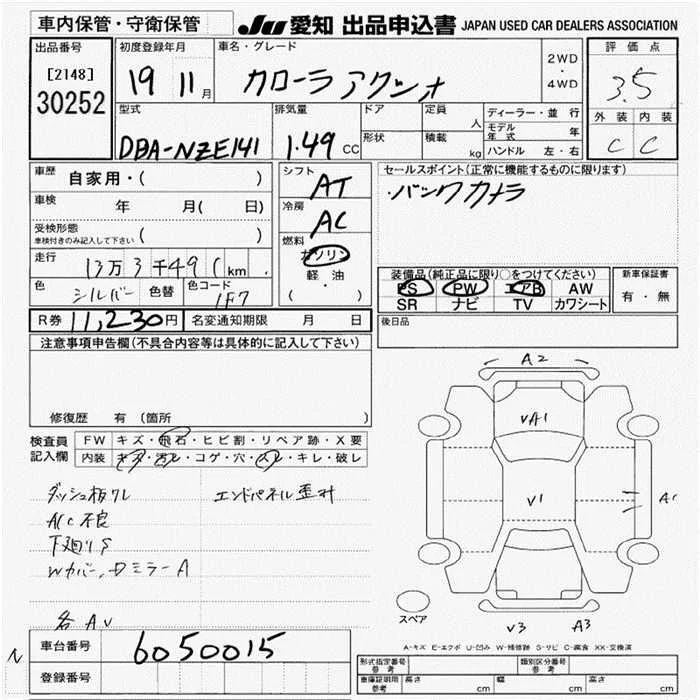 車内保管・守衛保管
JU 愛知 出品申込書 JAPAN USED CAR DEALERS ASSOCIATION
出品番号
[2148]
30252
初度登録年月
19 11 月
車名・グレード
カローラ アクシオ
2WD
・
4WD
評価点
3.5
外装 内装
C C
型式
DBA-NZE141
排気量
1.49 CC
ドア
形状
定員
人
積載
kg
ディーラー・並行
モデル年式 年
ハンドル 左・右
車歴
自家用・( )
車検
年 月( 日)
受検形態
車検付きのみ記入して下さい ( )
走行
13万3千49( km
色
シルバー
色替
色コード
1F7
シフト
AT
冷房
AC
燃料
ガソリン
軽油
( ・ )
セールスポイント(正常に機能するものに限ります)
・バックカメラ
装備品(純正品に限り○をつけてください)
PS PW エアB AW
SR ナビ TV カワシート
新車保証書
有・無
R券 11,230円 名変通知期限 月 日
後日品
注意事項申告欄(不具合内容等は具体的に記入して下さい)
修復歴 有 (箇所
検査員
記入欄
FW キズ・飛石・ヒビ割・リペア跡・X要
内装 キズ・汚レ・コゲ・穴・スレ・キレ・破レ
ダッシュ板ワレ エンドパネル歪み
A/C 不良
下廻りS
Wカバー、Dミラー A
各 AV
A2
VA1
V1
A1
V3 A3
スペア
A-キズ E-エクボ U-凹み W-補修跡 S-サビ C-腐食 XX-交換済
N
車台番号 6050015
登録番号
形式指定番号
参考
類別区分番号
参考
車庫証明用
参考
長さ cm 幅 cm 高さ cm